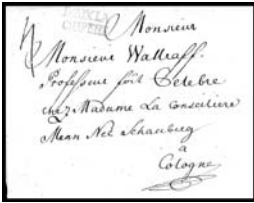 Monsieur
Monsieur Wallraff.
Professeur fort Celebre
chez Madame La Conseiliere
Menn Neé Schauberg
à
Cologne